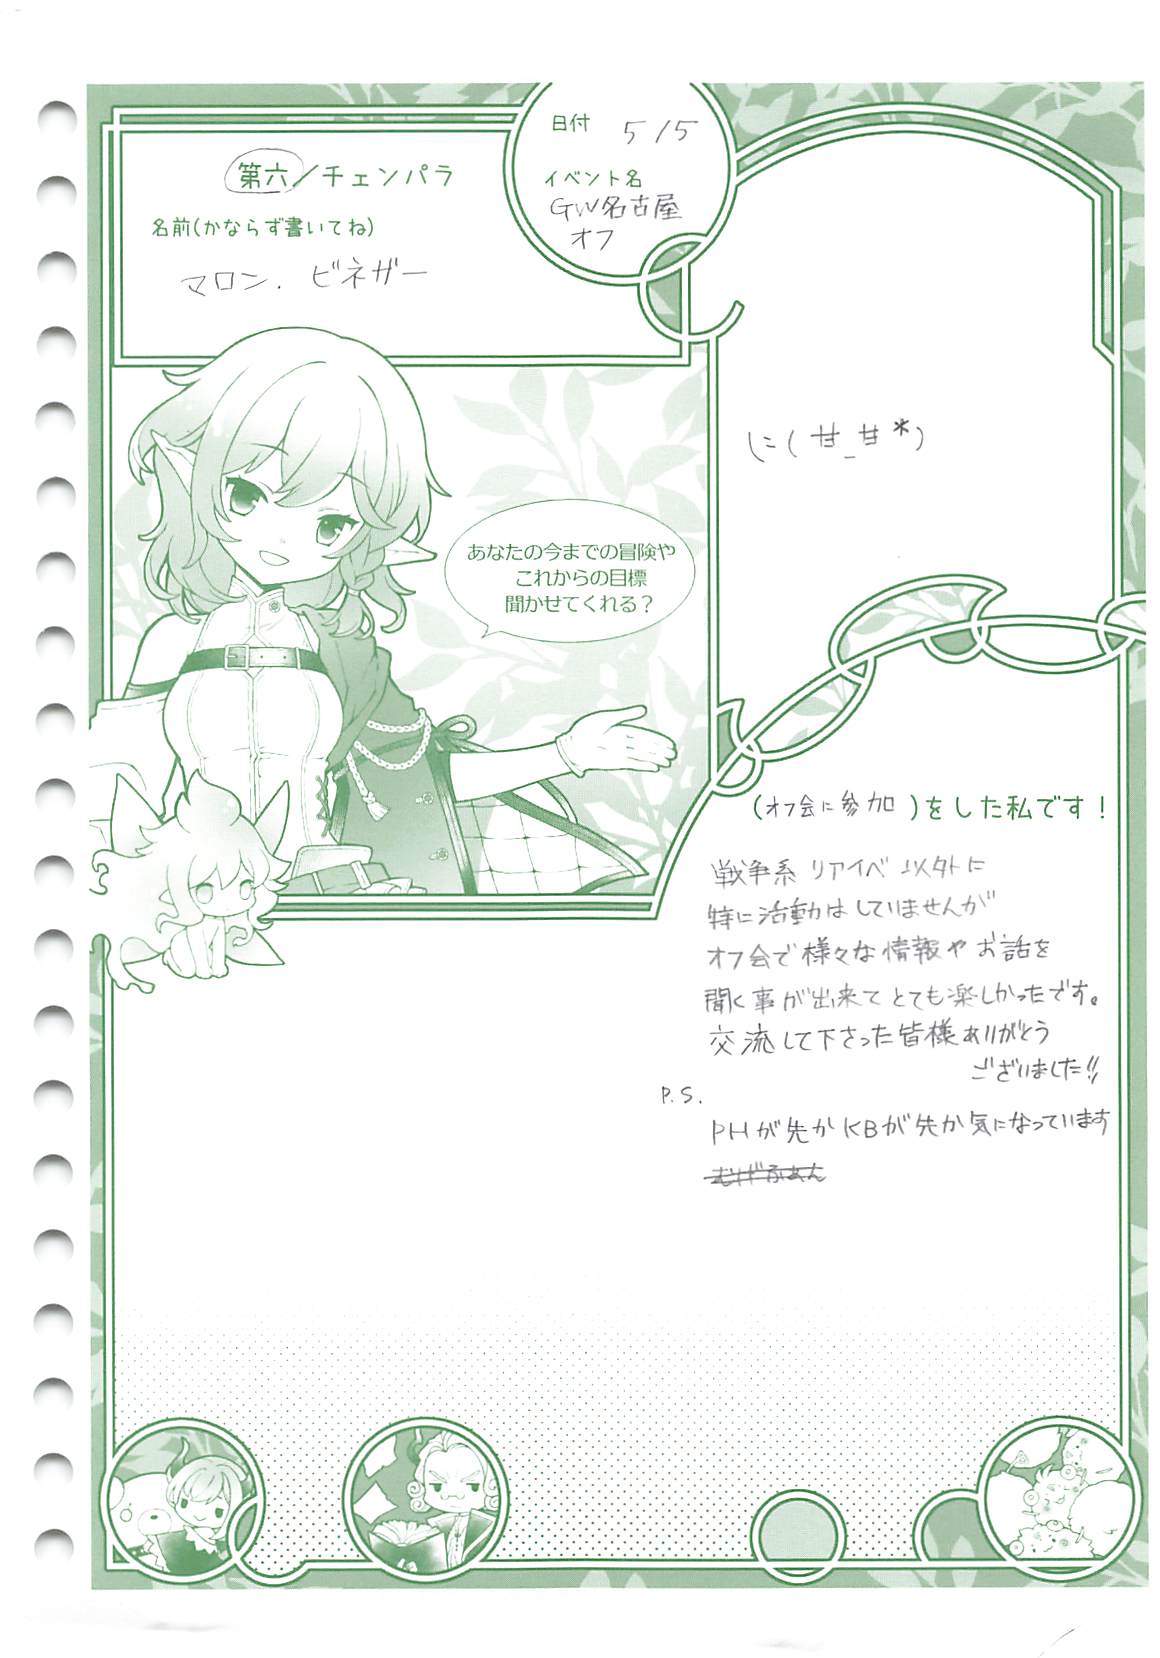 日付 5/5
イベント名
GW名古屋
オフ
第六/チェンパラ
名前(かならず書いてね)
マロン. ビネガー
に( 甘_甘*)
あなたの今までの冒険や
これからの目標
聞かせてくれる?
(オフ会に参加)をした私です!
戦争系リアイベ以外に
特に活動はしていませんが
オフ会で様々な情報やお話を
聞く事が出来てとても楽しかったです。
交流して下さった皆様ありがとう
ございました!!
P.S.
PHが先かKBが先か気になっています